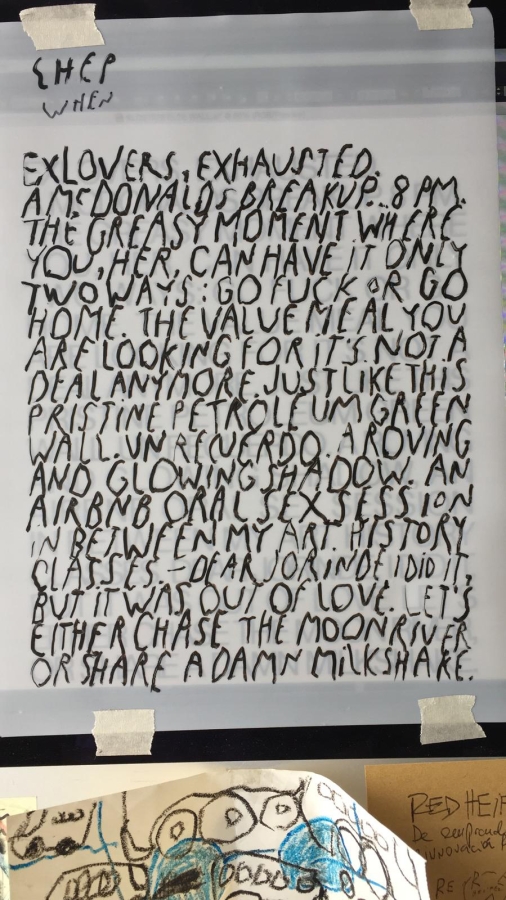 WHEN
EXLOVERS, EXHAUSTED.
A McDONALDS BREAKUP. 8 PM.
THE GREASY MOMENT WHERE
YOU, HER, CAN HAVE iT ONLY
TWO WAYS: GO FUCK OR GO
HOME. THE VALUE MEAL YOU
ARE LOOKING FOR iT'S NOT A
DEAL ANYMORE JUST LIKE THIS
PRISTINE PETROLEUM GREEN
WALL. UN RECUERDO. A ROVING
AND GLOWING SHADOW. AN
AIRBNB ORAL SEX SESSION
iN BETWEEN MY ART HISTORY
CLASSES. - DEAR JORiNDE I DiD iT,
BUT IT WAS OUT OF LOVE. LET'S
EITHER CHASE THE MOONRIVER
OR SHARE A DAMN MiLKSHAKE.
RED HEIF
De
RE